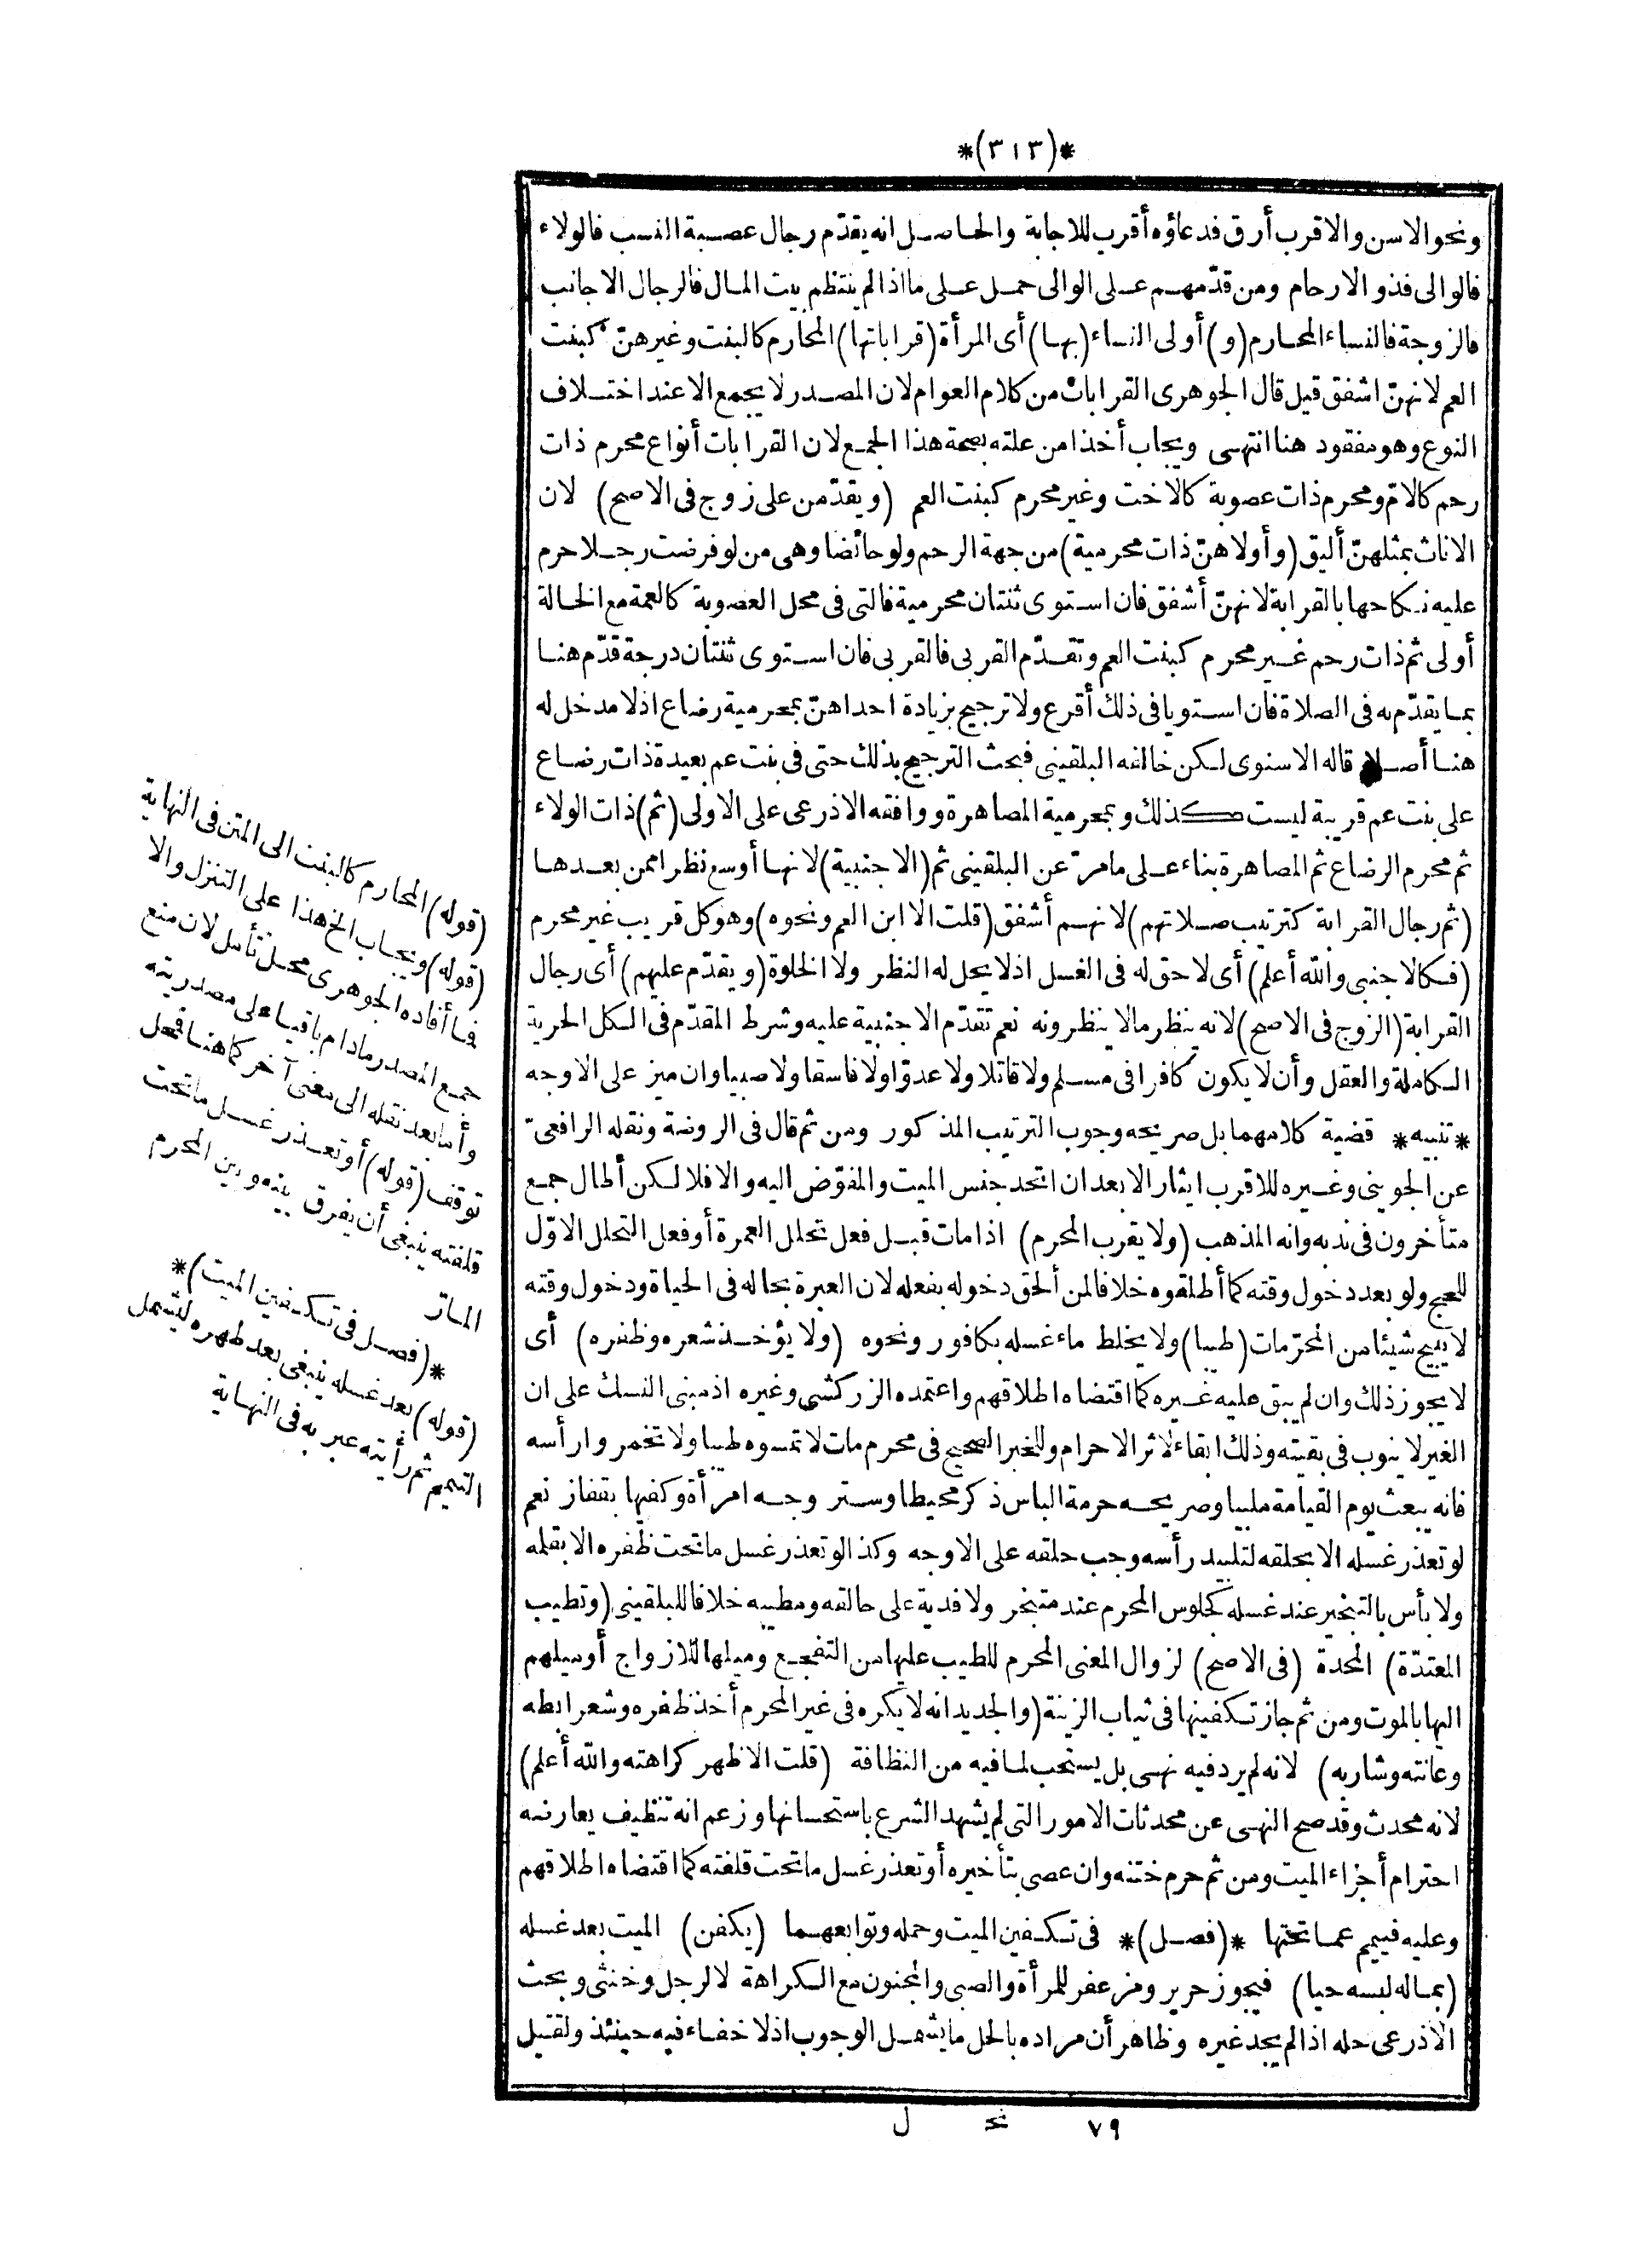 *(٣١٣)*
ونحو الاسن والاقرب أرق فدعاؤه أقرب للاجابة والحاصل انه يقدّم رجال عصبة النسب فالولاء
فالوالى فذوو الارحام ومن قدّمهم على الوالى حمل على ما اذا لم ينتظم بيت المال فالرجال الاجانب
فالزوجة فالنساء المحارم (و) أولى النساء (بها) أى المرأة (قراباتها) المحارم كالبنت وغيرهنّ كبنت
العم لانهنّ اشفق قيل قال الجوهرى القرابات من كلام العوام لان المصدر لا يجمع الا عند اختلاف
النوع وهو مفقود هنا انتهى ويجاب أخذا من علته بصحة هذا الجمع لان القرابات أنواع محرم ذات
رحم كالامّ ومحرم ذات عصوبة كالاخت وغير محرم كبنت العم (ويقدّمن على زوج فى الاصح) لان
الاناث بمثلهنّ أليق (وأولاهنّ ذات محرمية) من جهة الرحم ولو حائضا وهى من لو فرضت رجلا حرم
عليه نكاحها بالقرابة لانهنّ أشفق فان استوى ثنتان محرمية فالتى فى محل العصوبة كالعمة مع الخالة
أولى ثم ذات رحم غير محرم كبنت العم وتقدّم القربى فالقربى فان استوى ثنتان درجة قدّم هنا
بما يقدّم به فى الصلاة فان استويا فى ذلك أقرع ولا ترجيح بزيادة احداهنّ بمحرمية رضاع اذلا مدخل له
هنا أصلا قاله الاسنوى لكن خالفه البلقينى فبحث الترجيح بذلك حتى فى بنت عم بعيدة ذات رضاع
على بنت عم قريبة ليست كذلك وبمحرمية المصاهرة ووافقه الاذرعى على الاولى (ثم) ذات الولاء
ثم محرم الرضاع ثم المصاهرة بناء على ما مرّ عن البلقينى ثم (الاجنبية) لانها أوسع نظرا ممن بعدها
(ثم رجال القرابة كترتيب صلاتهم) لانهم أشفق (قلت الا ابن العم ونحوه) وهو كل قريب غير محرم
(فكالاجنبى والله أعلم) أى لا حق له فى الغسل اذلا يحل له النظر ولا الخلوة (ويقدّم عليهم) أى رجال
القرابة (الزوج فى الاصح) لانه ينظر مالا ينظرونه نعم تقدّم الاجنبية عليه وشرط المقدّم فى الكل الحرية
الكاملة والعقل وأن لا يكون كافرا فى مسلم ولا قاتلا ولا عدوّا ولا فاسقا ولا صبيا وان ميز على الاوجه
*تنبيه* قضية كلامهما بل صريحه وجوب الترتيب المذكور ومن ثم قال فى الروضة ونقله الرافعىّ
عن الجوينى وغيره للاقرب ايثار الابعد ان اتحد جنس الميت والمفوّض اليه والا فلا لكن أطال جمع
متأخرون فى ندبه وانه المذهب (ولا يقرب المحرم) اذا مات قبل فعل تحلل العمرة أو فعل التحلل الاوّل
للحج ولو بعد دخول وقته كما أطلقوه خلافا لمن ألحق دخوله بفعله لان العبرة بحاله فى الحياة ودخول وقته
لا يبيح شيئا من المحرّمات (طيبا) ولا يخلط ماء غسله بكافور ونحوه (ولا يؤخذ شعره وظفره) أى
لا يجوز ذلك وان لم يبق عليه غيره كما اقتضاه اطلاقهم واعتمده الزركشى وغيره اذ مبنى النسك على ان
الغير لا ينوب فى بقيته وذلك ابقاء لاثر الاحرام وللخبر الصحيح فى محرم مات لا تمسوه طيبا ولا تخمروا رأسه
فانه يبعث يوم القيامة ملبيا وصريحه حرمة الباس ذكر محيطا وستر وجه امرأة وكفيها بقفاز نعم
لو تعذر غسله الا بحلقه لتلبيد رأسه وجب حلقه على الاوجه وكذا لو تعذر غسل ما تحت ظفره الا بقلمه
ولا بأس بالتبخير عند غسله كجلوس المحرم عند متبخر ولا فدية على حالقه ومطيبه خلافا للبلقينى (وتطيب
المعتدّة) المحدة (فى الاصح) لزوال المعنى المحرم للطيب عليها من التفجع وميلها للازواج أو ميلهم
اليها بالموت ومن ثم جاز تكفينها فى ثياب الزينة (والجديد انه لا يكره فى غير المحرم أخذ ظفره وشعر ابطه
وعانته وشاربه) لانه لم يرد فيه نهى بل يستحب لما فيه من النظافة (قلت الاظهر كراهته والله أعلم)
لانه محدث وقد صح النهى عن محدثات الامور التى لم يشهد الشرع باستحسانها وزعم انه تنظيف يعارضه
احترام أجزاء الميت ومن ثم حرم ختنه وان عصى بتأخيره أو تعذر غسل ما تحت قلفته كما اقتضاه اطلاقهم
وعليه فييمم عما تحتها *(فصل)* فى تكفين الميت وحمله وتوابعهما (يكفن) الميت بعد غسله
(بما له لبسه حيا) فيجوز حرير ومزعفر للمرأة والصبى والمجنون مع الكراهة لا لرجل وخنثى وبحث
الاذرعى حله اذا لم يجد غيره وظاهر أن مراده بالحل ما يشمل الوجوب اذلا خفاء فيه حينئذ ولقتيل
٧٩ نح ل
(قوله) المحارم كالبنت الى المتن فى النهاية
(قوله) ويجاب الخ هذا على التنزل والا
فما أفاده الجوهرى محل تأمل لان منع
جمع المصدر مادام باقيا على مصدريته
وأما بعد نقله الى معنى آخر كما هنا فمحل
توقف (قوله) أو تعذر غسل ما تحت
قلفته ينبغى أن يفرق بينه وبين المحرم
المارّ
*(فصل فى تكفين الميت)*
(قوله) بعد غسله ينبغى بعد طهره ليشمل
التيمم ثم رأيته عبر به فى النهاية